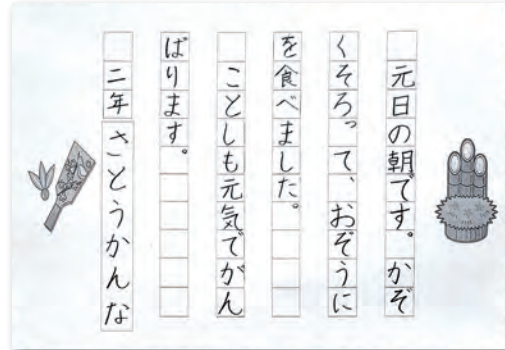 元日の朝です。かぞ
くそろって、おぞうに
を食べました。
　ことしも元気でがん
ばります。
　二年さとうかんな